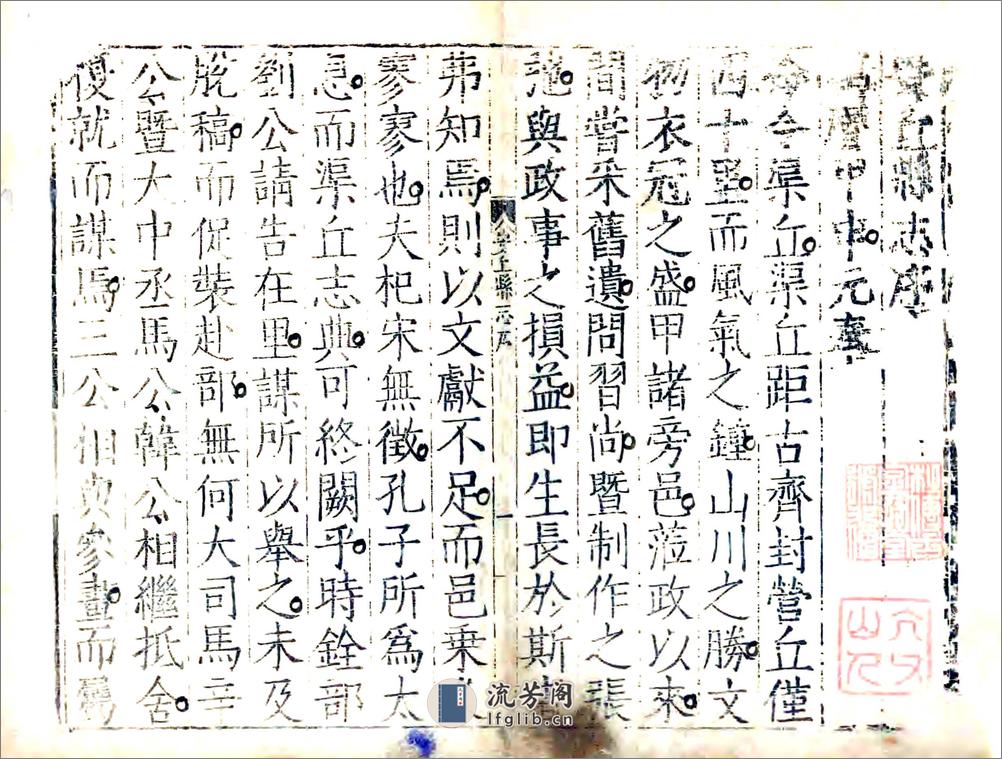 安丘縣志序
萬曆甲申元事
命令渠丘渠丘距古齊封營丘僅
四十里而風氣之鐘山川之勝文
物衣冠之盛甲諸旁邑蒞政以來
間嘗采舊遺問習尚暨制作之張
弛與政事之損益即生長於斯者
弗知焉則以文獻不足而邑乘
寥寥也夫杞宋無徵孔子所為太
息而渠丘志典可終闕乎時銓部
劉公請告在里謀所以舉之未及
脫稿而促裝赴部無何大司馬辛
公暨大中丞馬公韓公相繼抵舍
復就而謀焉三公相與參畫而
安丘縣志序
一
流芳阁
lfglib.cn